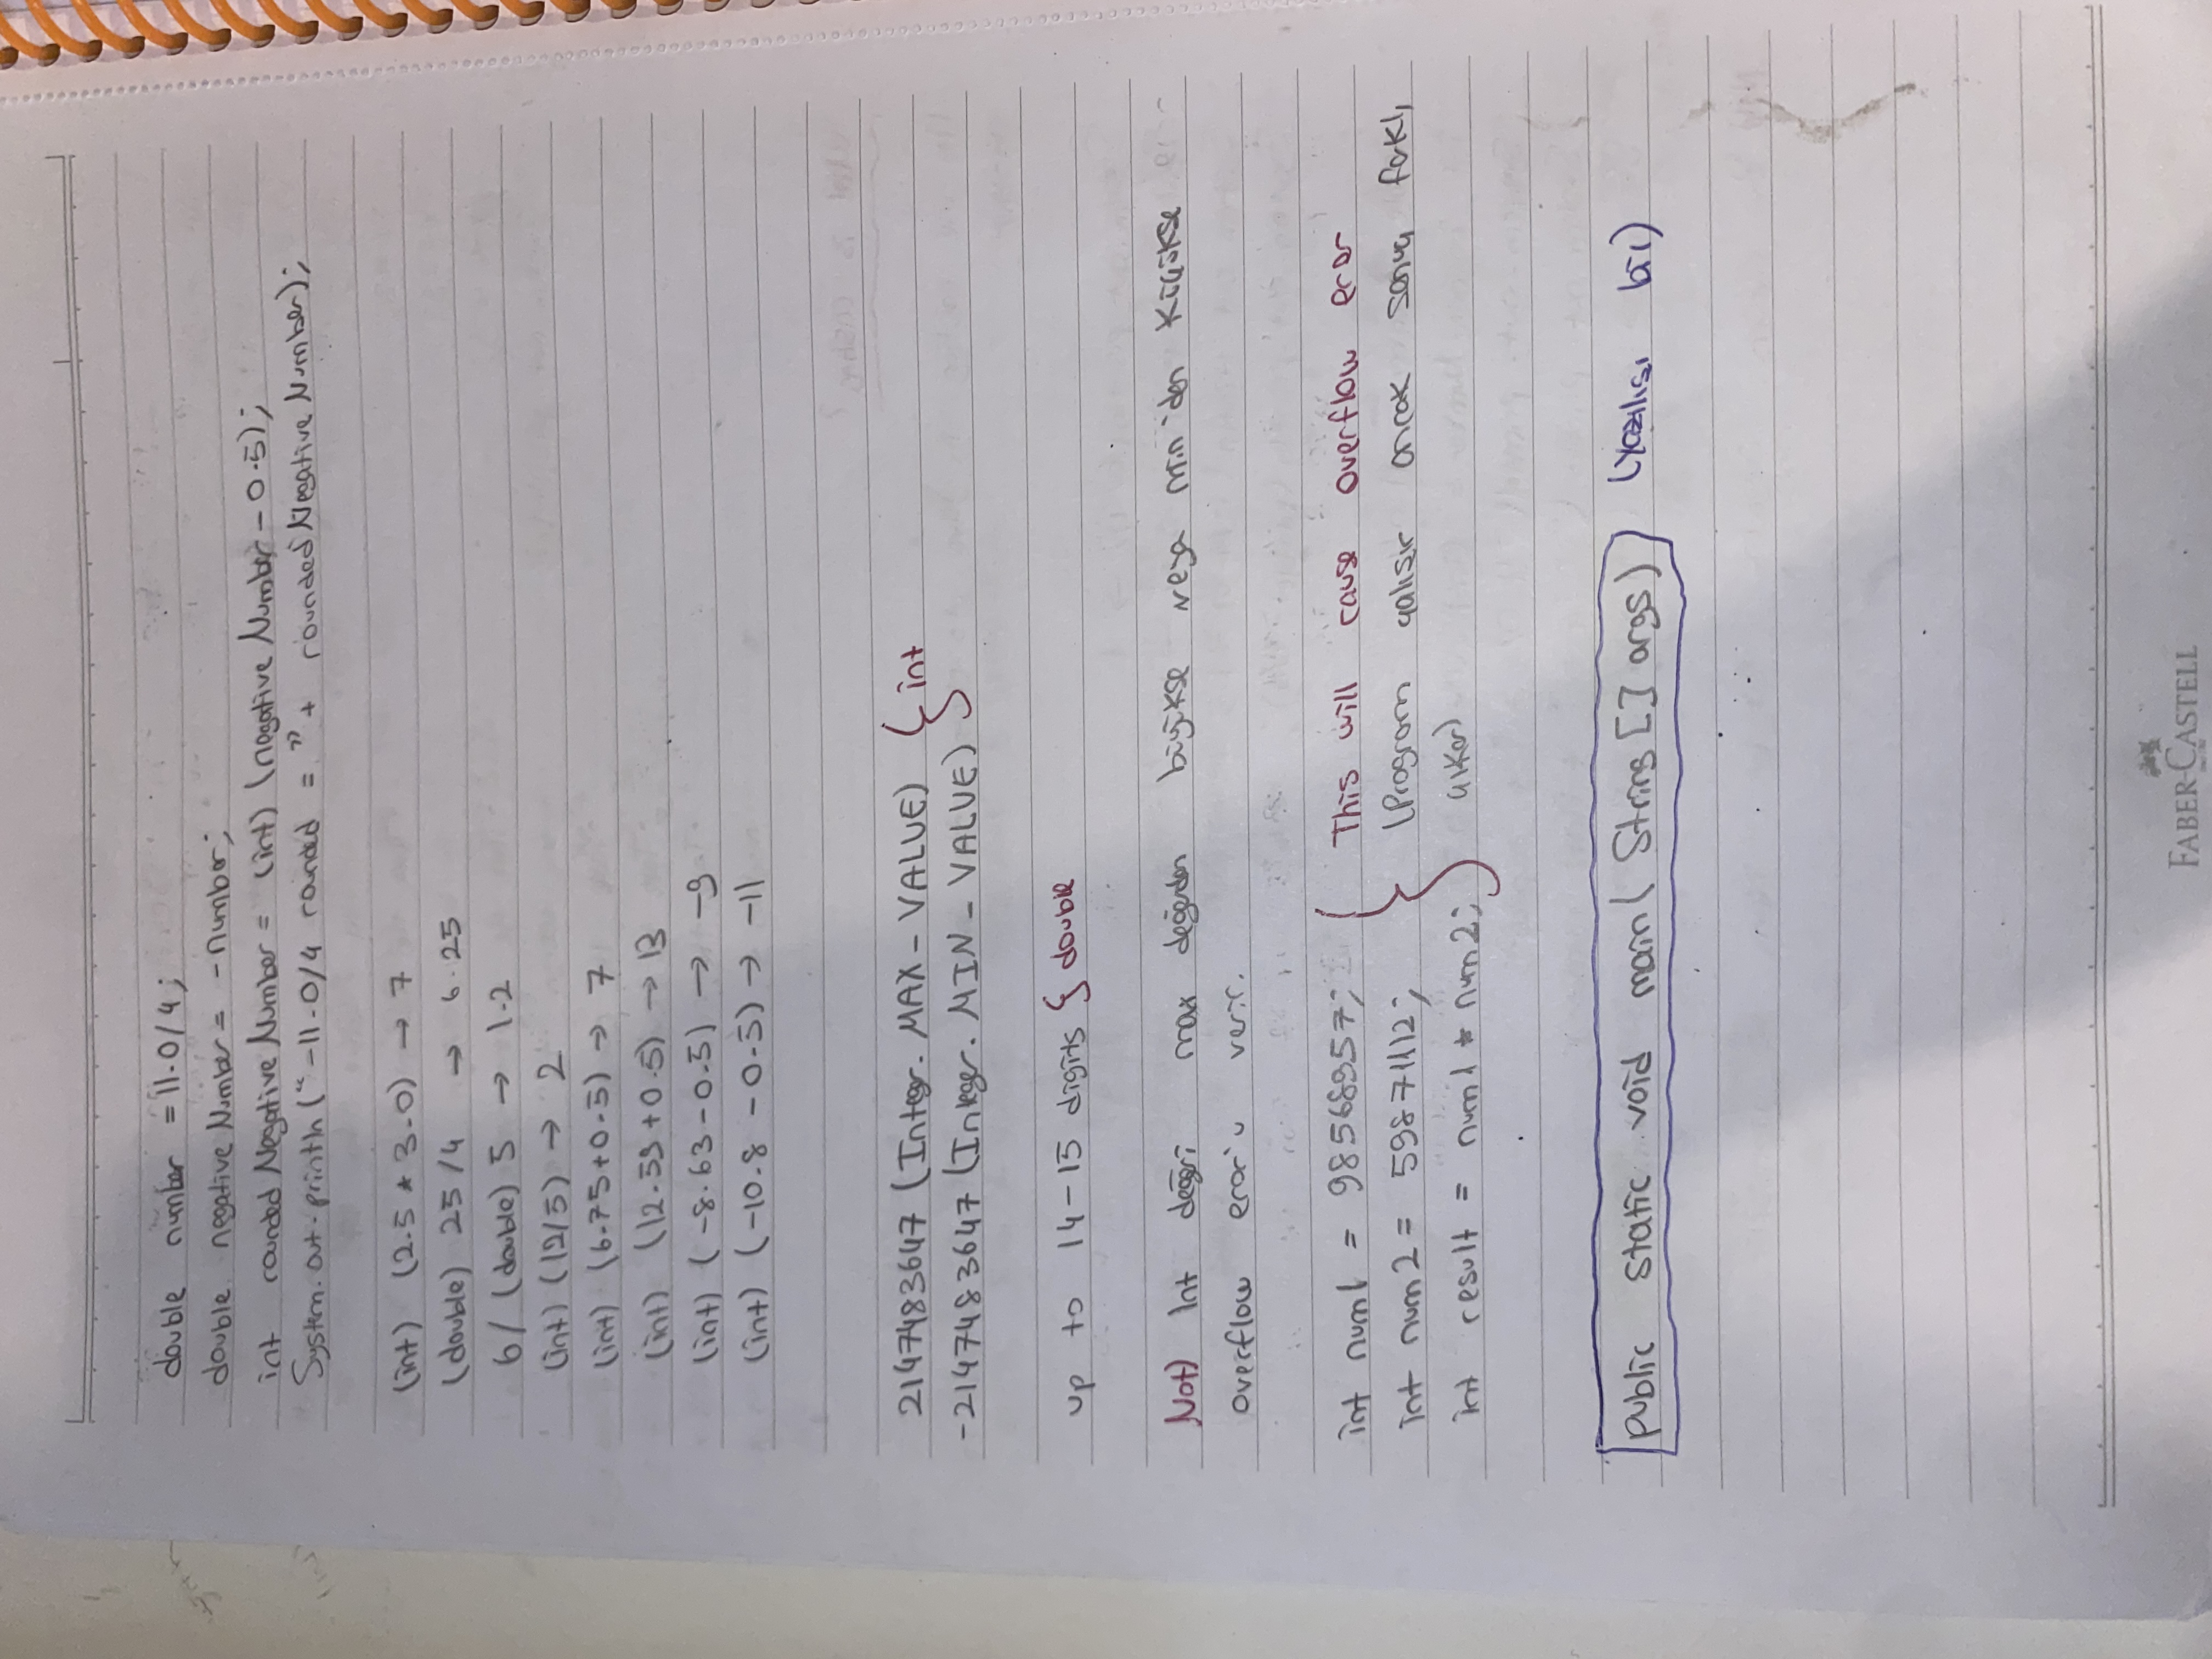 double number = 11.0/4;
double negativeNumber = -number;
int roundedNegativeNumber = (int) (negativeNumber - 0.5);
System.out.println("-11.0/4 rounded = " + roundedNegativeNumber);
(int) (2.5 * 3.0) → 7
(double) 25/4 → 6.25
6/(double) 5 → 1.2
(int) (12/5) → 2
(int) (6.75+0.5) → 7
(int) (12.59+0.5) → 13
(int) (-8.63-0.5) → -9
(int) (-10.8 - 0.5) → -11
2147483647 (Integr. MAX_VALUE) } int
-2147483647 (Integer. MIN_VALUE)
up to 14-15 digits } double
Not) Int değeri max değerden büyükse veya min'den küçükse
overflow eror'u verir.
int num1 = 98568957; } This will cause overflow eror
int num2 = 59871112; (Program çalışır ancak sonuç farklı
int result = num1 * num2; çıkar)
public static void main( String [] args) (Yazılışı bil)
FABER-CASTELL